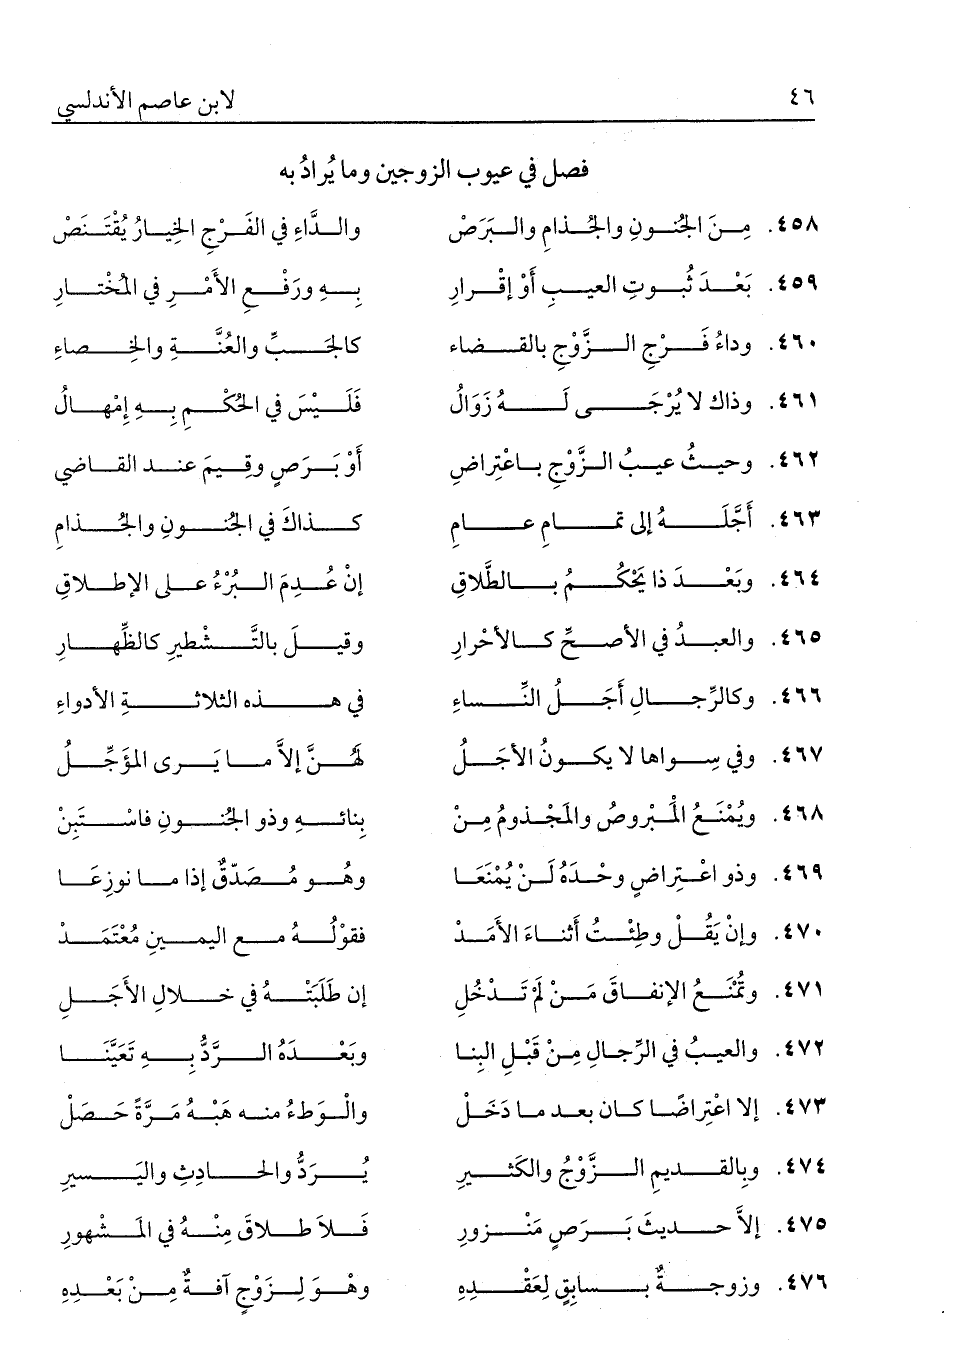 ٤٦ لابن عاصم الأندلسي
فصل في عيوب الزوجين وما يُرادُ به
٤٥٨. مِنَ الجُنونِ والجُذامِ والبَرَصْ والدَّاءِ في الفَرْجِ الخِيارُ يُقْتَنَصْ
٤٥٩. بَعْدَ ثُبوتِ العيبِ أوْ إقْرارِ بِهِ ورَفْعِ الأَمْرِ في المُخْتارِ
٤٦٠. وداءُ فَرْجِ الزَّوْجِ بالقَضاءِ كالجَبِّ والعُنَّةِ والخِصاءِ
٤٦١. وذاكَ لا يُرْجَى لَهُ زَوَالُ فَلَيْسَ في الحُكْمِ بِهِ إِمْهالُ
٤٦٢. وحيثُ عيبُ الزَّوْجِ باعْتِراضِ أوْ بَرَصٍ وقِيمَ عند القاضي
٤٦٣. أَجَّلَهُ إلى تمامِ عامِ كذاكَ في الجُنونِ والجُذامِ
٤٦٤. وبَعْدَ ذا يَحْكُمُ بالطَّلاقِ إنْ عُدِمَ البُرْءُ على الإطلاقِ
٤٦٥. والعبدُ في الأصحِّ كالأحْرارِ وقيلَ بالتَّشْطيرِ كالظِّهارِ
٤٦٦. وكالرِّجالِ أجَلُ النِّساءِ في هذه الثلاثةِ الأدواءِ
٤٦٧. وفي سِواها لا يكونُ الأجَلُ لهُنَّ إلاَّ ما يَرى المُؤَجِّلُ
٤٦٨. ويُمْنَعُ المَبْروصُ والمَجْذومُ مِنْ بنائهِ وذو الجُنونِ فاسْتَبِنْ
٤٦٩. وذو اعْتِراضٍ وحْدَهُ لَنْ يُمْنَعَا وهُو مُصَدَّقٌ إذا ما نوزِعَا
٤٧٠. وإنْ يَقُلْ وطِئْتُ أثناءَ الأَمَدْ فقوْلُهُ مع اليمينِ مُعْتَمَدْ
٤٧١. وتُمْنَعُ الإنفاقَ مَنْ لَمْ تَدْخُلِ إن طَلَبَتْهُ في خلالِ الأجَلِ
٤٧٢. والعيبُ في الرِّجالِ مِنْ قَبْلِ البِنا وبَعْدَهُ الرَّدُّ بهِ تَعَيَّنَا
٤٧٣. إلا اعْتِراضًا كان بعد ما دَخَلْ والوَطءُ منه هَبْهُ مَرَّةً حَصَلْ
٤٧٤. وبالقَديمِ الزَّوْجُ والكَثيرِ يُرَدُّ والحادِثِ واليَسيرِ
٤٧٥. إلاَّ حديثَ بَرَصٍ مَنْزورِ فَلاَ طلاقَ مِنْهُ في المَشْهورِ
٤٧٦. وزوجةٌ بسابِقٍ لِعَقْدِهِ وهْوَ لِزَوْجٍ آفةٌ مِنْ بَعْدِهِ